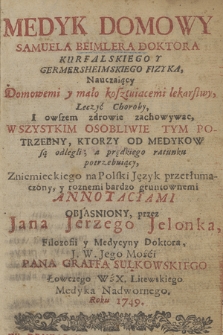 MEDYK DOMOWY
SAMUELA BEIMLERA DOKTORA
KURFALSKIEGO Y
GERMERSHEIMSKIEGO FIZYKA,
Nauczaiący
Domowemi y mało kosztuiącemi lekarstwy,
Leczyć Choroby,
I owszem zdrowie zachowywać,
WSZYSTKIM OSOBLIWIE TYM PO-
TRZEBNY, KTORZY OD MEDYKOW
są odlegli, a prędkiego ratunku
potrzebuiący,
Zniemieckiego na Polski Język przetłuma-
czony, y roznemi bardzo gruntownemi
ANNOTACIAMI
OBJASNIONY, przez
Jana Jerzego Jelonka,
Filozofii y Medycyny Doktora,
J. W. Jego Mości
PANA GRAFFA SUŁKOWSKIEGO
Łowczego W.X. Litewskiego
Medyka Nadwornego,
Roku 1749.